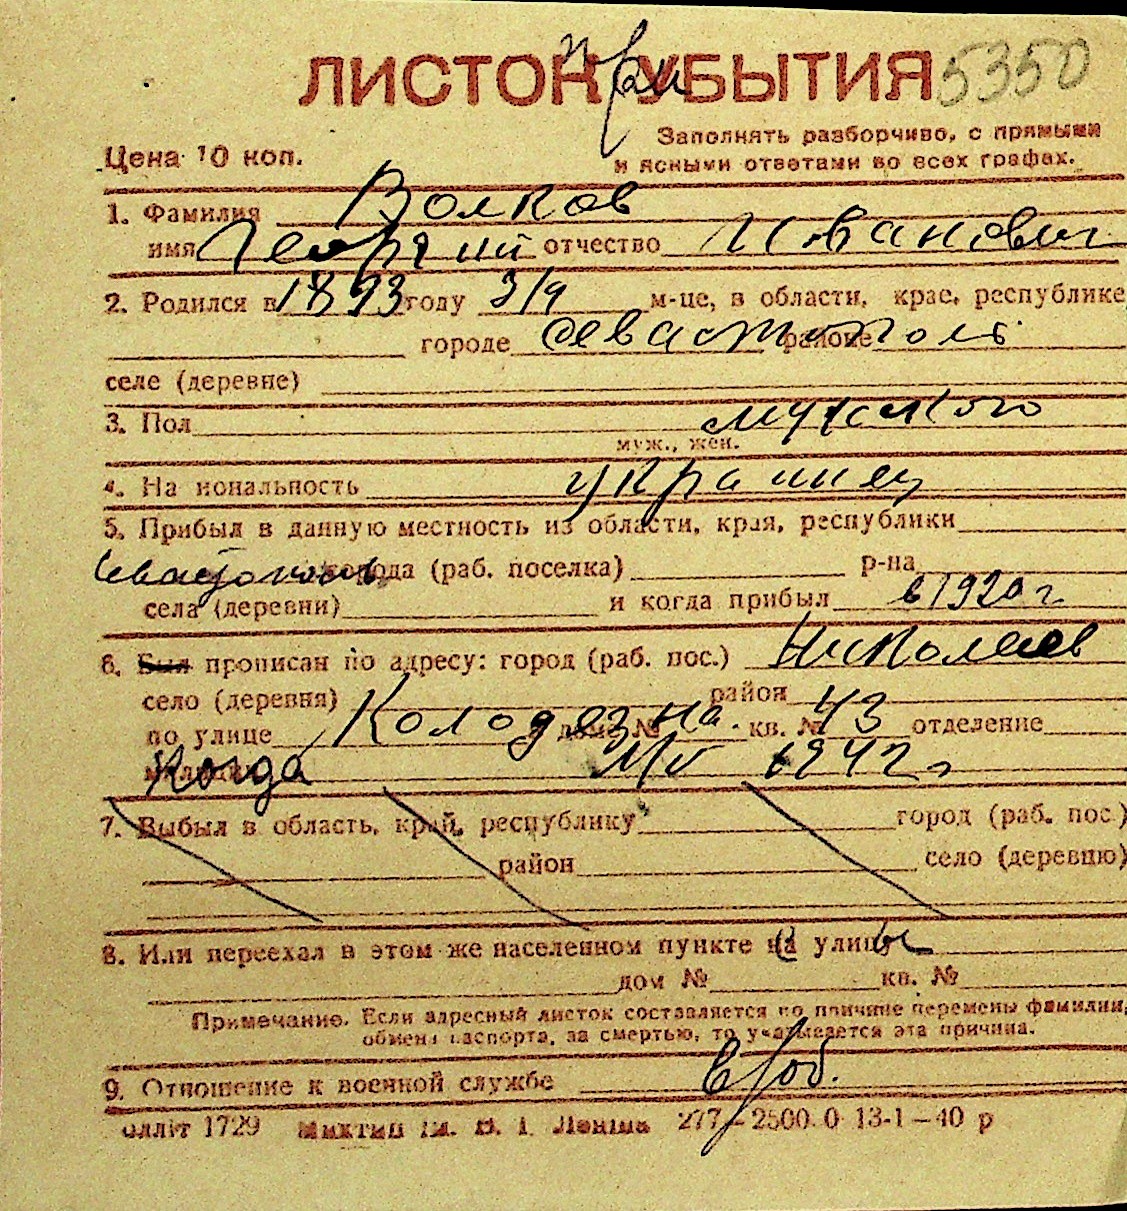 ЛИСТОК УБЫТИЯ 5350
при
Заполнять разборчиво, с прямыми
Цена 10 коп.
и ясными ответами во всех графах.
1. Фамилия Волков
имя Георгий отчество Иванович
2. Родился в 1893 году 3/4 м-це, в области, крае, республике
городе Севастополь районе
селе (деревне)
3. Пол мужского
муж., жен.
4. На иональность украинец
5. Прибыл в данную местность из области, края, республики
Севастополь города (раб. поселка) р-на
села (деревни) и когда прибыл в 1920 г
6. Был прописан по адресу: город (раб. пос.) Николаев
село (деревня) район
по улице Колодезна. доме № кв. № 43 отделение
Когда 1942 г.
7. Выбыл в область, край, республику город (раб. пос.)
район село (деревню)
8. Или переехал в этом же населенном пункте с улицы
дом № кв. №
Примечание. Если адресный листок составляется по причине перемены фамилии,
обмена паспорта, за смертью, то указывается эта причина.
9. Отношение к военной службе в/об.
1729 277—2500. 0 13-1—40 р